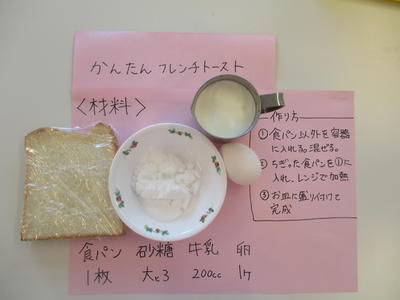 かんたん フレンチトースト
〈材料〉
食パン 砂糖 牛乳 卵
1枚 大さ3 200cc 1ヶ
作り方
①食パン以外を容器
に入れる。混ぜる。
②ちぎった食パンを①に
入れ、レンジで加熱
③お皿に盛り付けて
完成